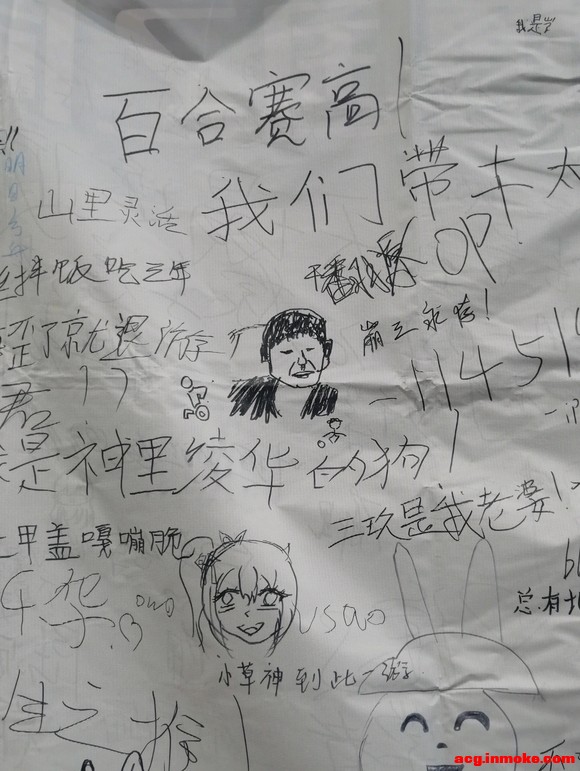 我是
百合赛高！
明日
山里灵活
我们带土太
OP！
拌饭吃三年
歪了就退游
崩三永存！
11451
君
是神里绫华的狗！
三玖是我老婆！
甲盖嘎嘣脆
owo
usao
总有
小草神到此一游
生之
acg.inmoke.com